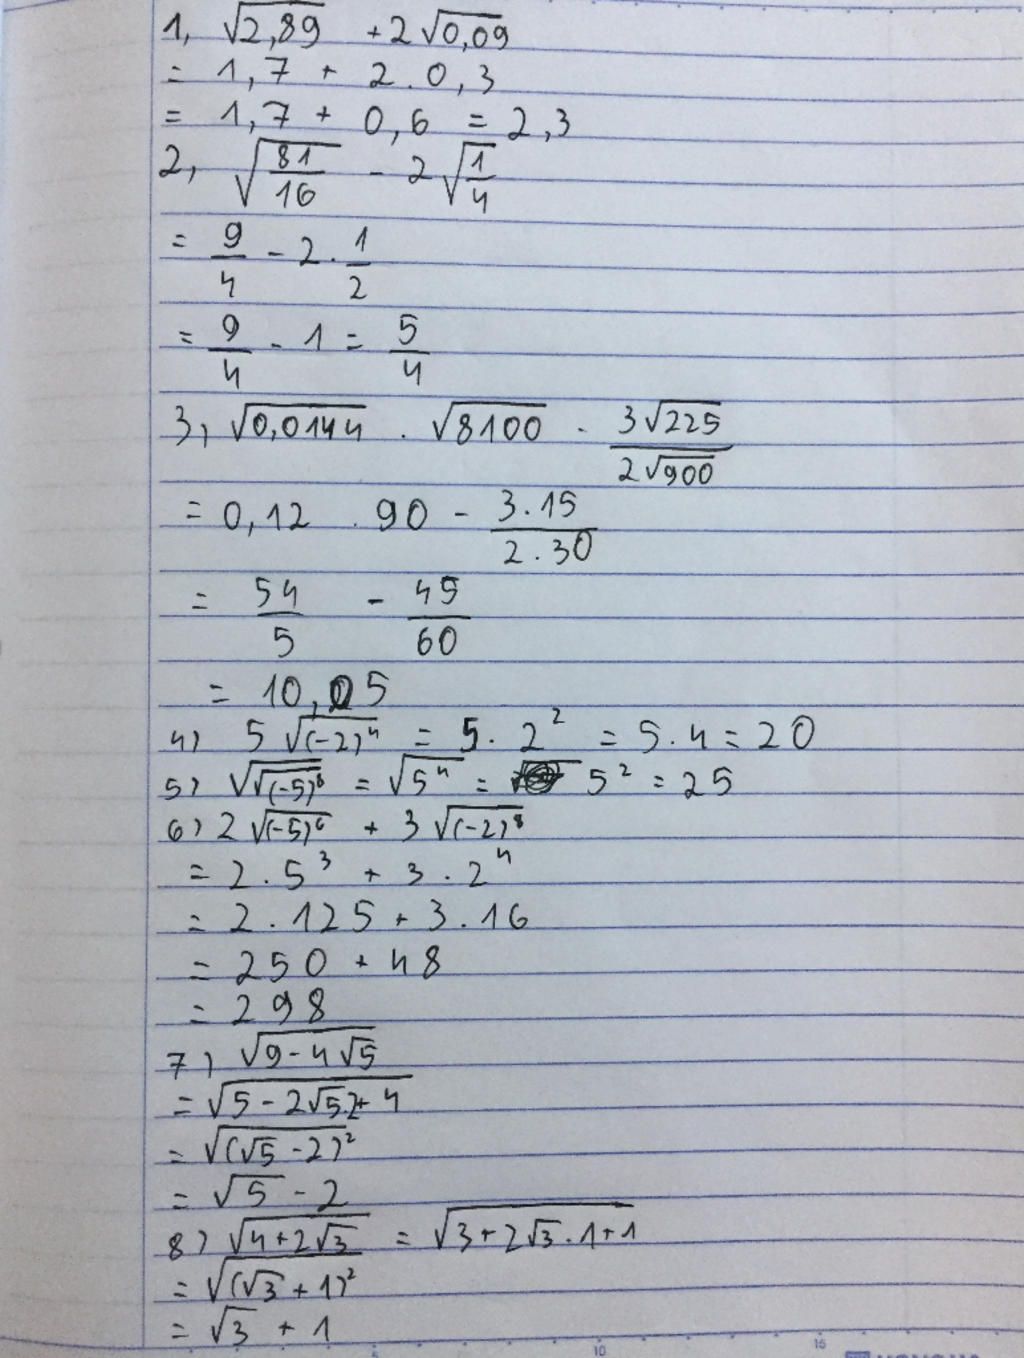 1, √2,89 + 2√0,09
= 1,7 + 2.0,3
= 1,7 + 0,6 = 2,3
2, √(81/16) - 2√(1/4)
= 9/4 - 2.1/2
= 9/4 - 1 = 5/4
3, √0,0144 . √8100 - 3√225/2√900
= 0,12 . 90 - 3.15/2.30
= 54/5 - 45/60
= 10,05
4) 5√(-2)⁴ = 5.2² = 5.4 = 20
5) √√(-5)⁸ = √5⁴ = 5² = 25
6) 2√(-5)⁶ + 3√(-2)⁸
= 2.5³ + 3.2⁴
= 2.125 + 3.16
= 250 + 48
= 298
7) √(9-4√5)
= √(5-2√5.2+4)
= √(√5-2)²
= √5 - 2
8) √(4+2√3) = √(3+2√3.1+1)
= √(√3+1)²
= √3 + 1
5 10 15